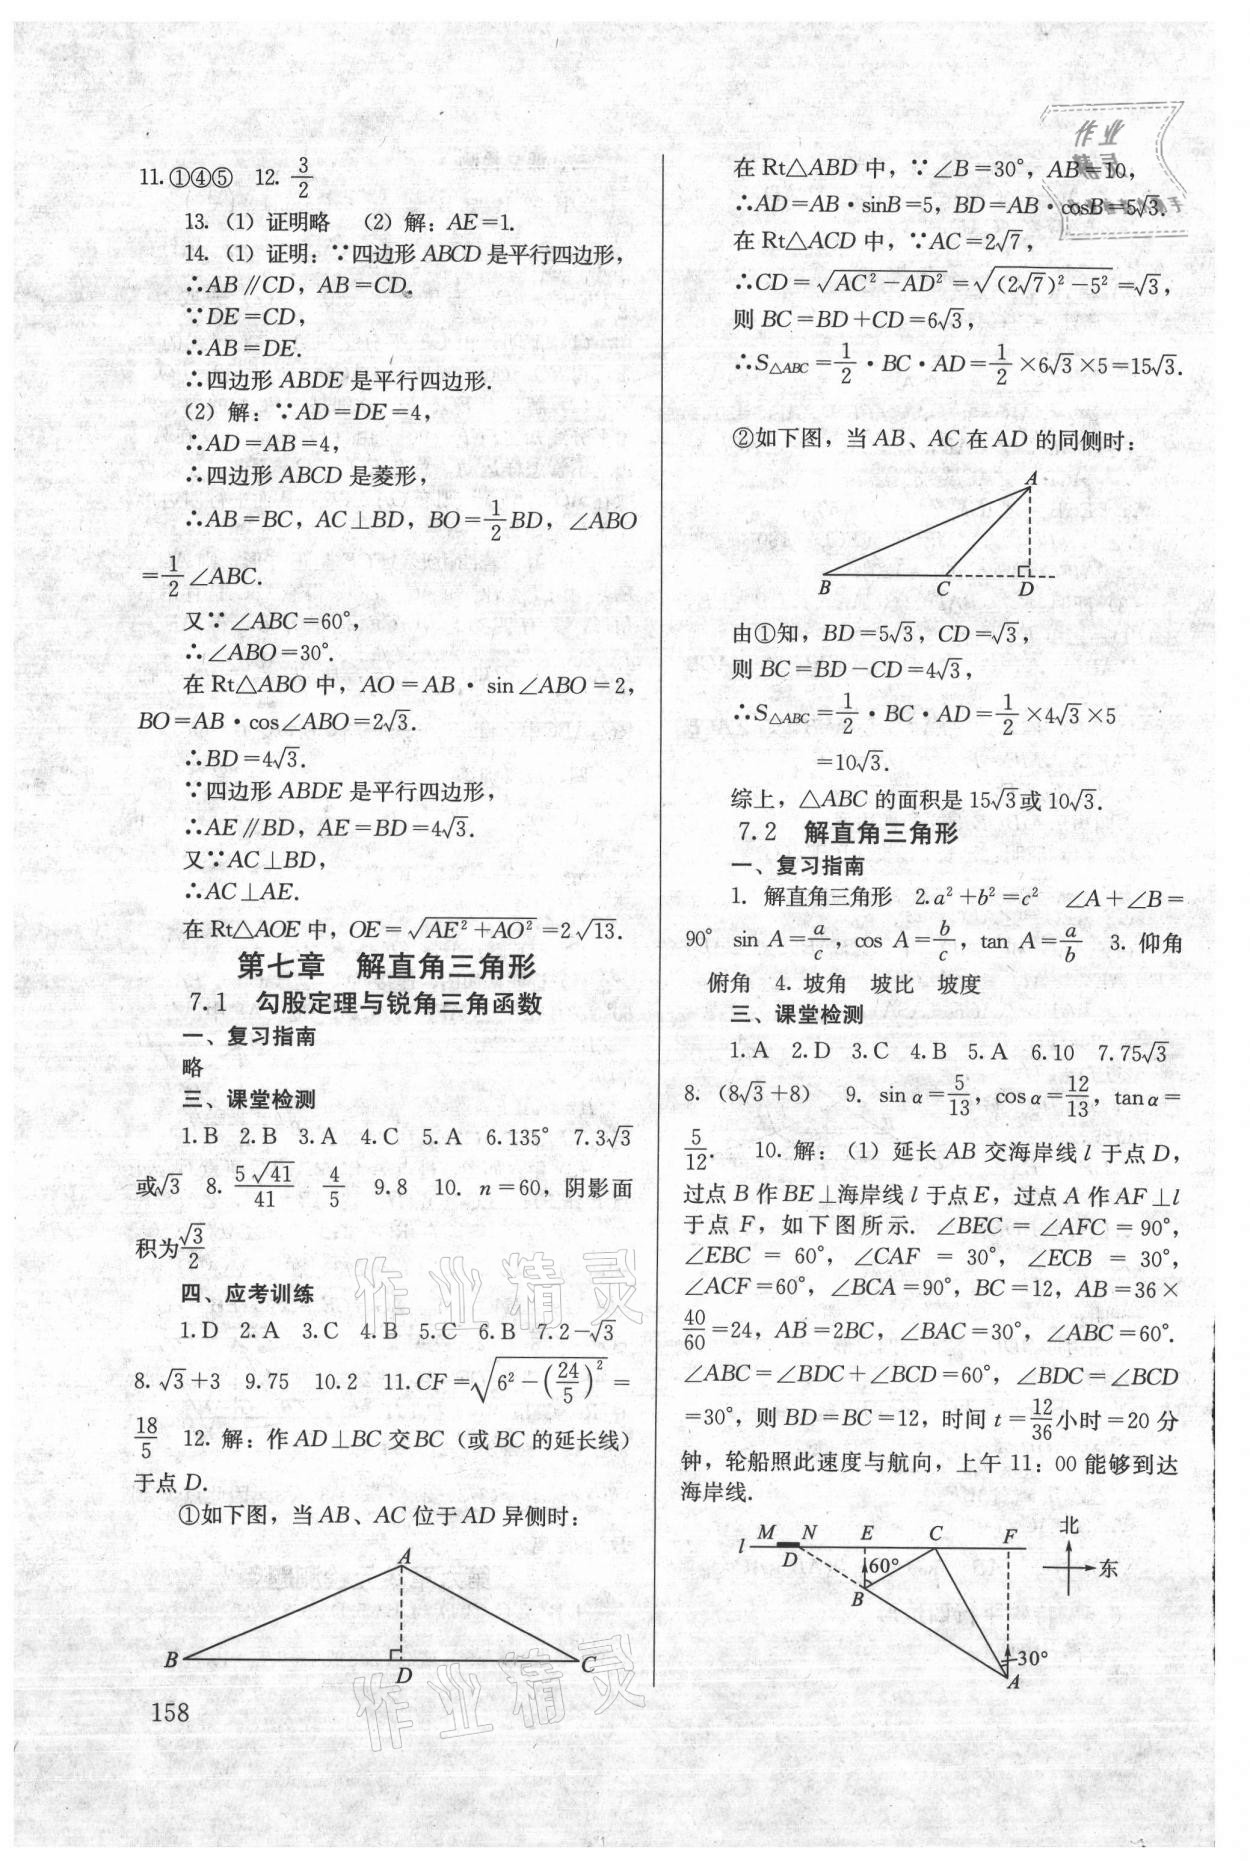 11. ①④⑤　12. 3/2
13. (1) 证明略　(2) 解：AE=1.
14. (1) 证明：∵四边形 ABCD 是平行四边形，
∴AB∥CD，AB=CD.
∵DE=CD，
∴AB=DE.
∴四边形 ABDE 是平行四边形.
(2) 解：∵AD=DE=4，
∴AD=AB=4，
∴四边形 ABCD 是菱形，
∴AB=BC，AC⊥BD，BO=1/2 BD，∠ABO
=1/2 ∠ABC.
又∵∠ABC=60°，
∴∠ABO=30°.
在 Rt△ABO 中，AO=AB·sin∠ABO=2，
BO=AB·cos∠ABO=2√3.
∴BD=4√3.
∵四边形 ABDE 是平行四边形，
∴AE∥BD，AE=BD=4√3.
又∵AC⊥BD，
∴AC⊥AE.
在 Rt△AOE 中，OE=√(AE²+AO²)=2√13.
第七章　解直角三角形
7.1　勾股定理与锐角三角函数
一、复习指南
略
三、课堂检测
1.B　2.B　3.A　4.C　5.A　6.135°　7.3√3
或√3　8. 5√41/41　4/5　9.8　10. n=60，阴影面
积为√3/2
四、应考训练
1.D　2.A　3.C　4.B　5.C　6.B　7.2-√3
8.√3+3　9.75　10.2　11.CF=√(6²-(24/5)²)=
18/5　12. 解：作 AD⊥BC 交 BC（或 BC 的延长线）
于点 D.
①如下图，当 AB、AC 位于 AD 异侧时：
A
B
D
C
158
在 Rt△ABD 中，∵∠B=30°，AB=10，
∴AD=AB·sinB=5，BD=AB·cosB=5√3.
在 Rt△ACD 中，∵AC=2√7，
∴CD=√(AC²-AD²)=√((2√7)²-5²)=√3，
则 BC=BD+CD=6√3，
∴S△ABC=1/2·BC·AD=1/2×6√3×5=15√3.
②如下图，当 AB、AC 在 AD 的同侧时：
A
B
C
D
由①知，BD=5√3，CD=√3，
则 BC=BD-CD=4√3，
∴S△ABC=1/2·BC·AD=1/2×4√3×5
=10√3.
综上，△ABC 的面积是 15√3或 10√3.
7.2　解直角三角形
一、复习指南
1. 解直角三角形　2.a²+b²=c²　∠A+∠B=
90°　sin A=a/c，cos A=b/c，tan A=a/b　3. 仰角
俯角　4. 坡角　坡比　坡度
三、课堂检测
1.A　2.D　3.C　4.B　5.A　6.10　7.75√3
8.（8√3+8）　9. sin α=5/13，cos α=12/13，tan α=
5/12.　10. 解：(1) 延长 AB 交海岸线 l 于点 D，
过点 B 作 BE⊥海岸线 l 于点 E，过点 A 作 AF⊥l
于点 F，如下图所示. ∠BEC=∠AFC=90°，
∠EBC=60°，∠CAF=30°，∠ECB=30°，
∠ACF=60°，∠BCA=90°，BC=12，AB=36×
40/60=24，AB=2BC，∠BAC=30°，∠ABC=60°.
∠ABC=∠BDC+∠BCD=60°，∠BDC=∠BCD
=30°，则 BD=BC=12，时间 t=12/36小时=20 分
钟，轮船照此速度与航向，上午 11：00 能够到达
海岸线.
l
M
N
D
E
C
F
60°
B
30°
A
北
东
作业精灵
作业精灵
作业